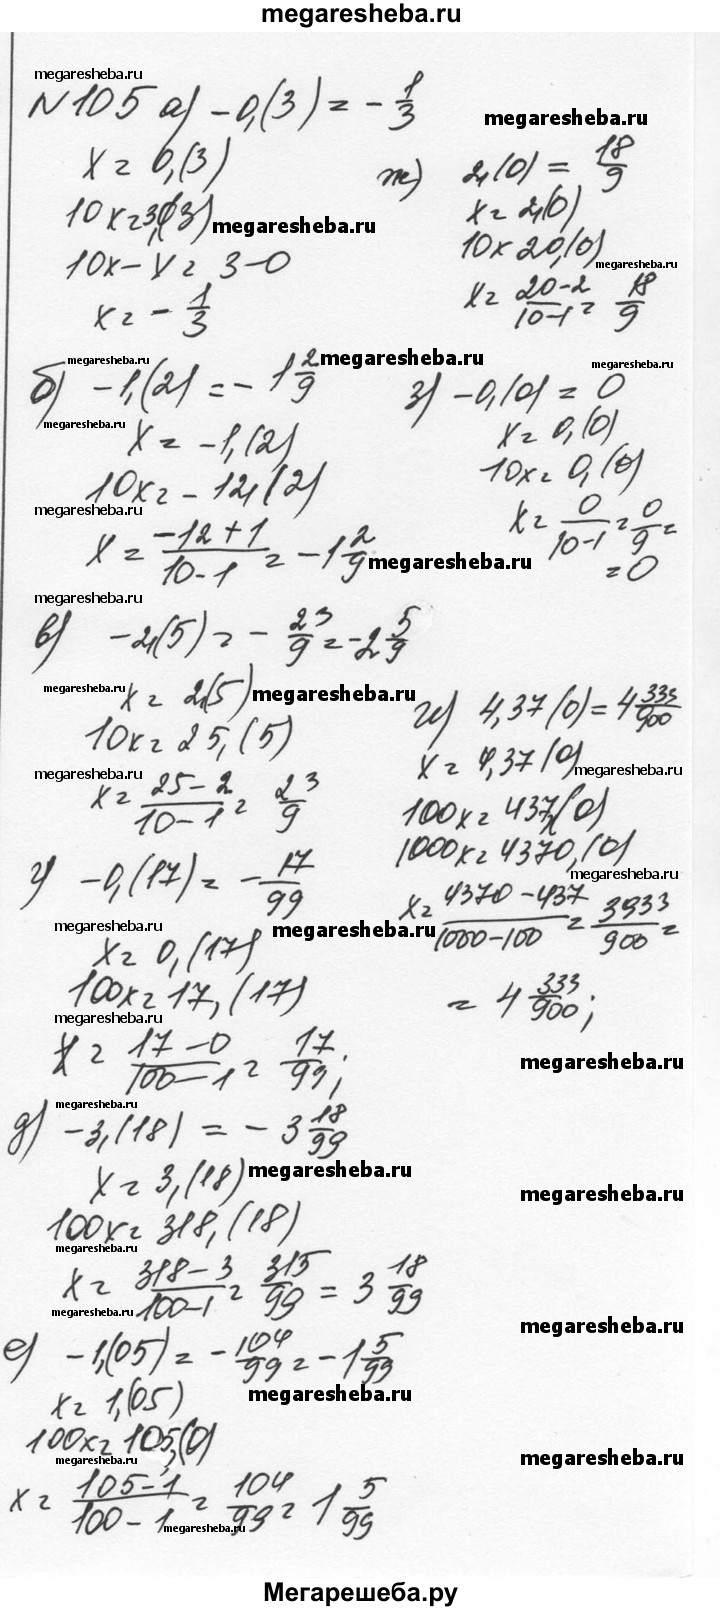 megaresheba.ru
megaresheba.ru
N 105 а) -0,(3) = - 1/3
x = 0,(3)
10x = 3,(3)
megaresheba.ru
10x - x = 3-0
x = - 1/3
megaresheba.ru
б) -1,(2) = - 1 2/9
megaresheba.ru
megaresheba.ru
x = -1,(2)
10x = -12,(2)
megaresheba.ru
x = -12+1/10-1 = -1 2/9
megaresheba.ru
megaresheba.ru
в) -2,(5) = - 23/9 = -2 5/9
megaresheba.ru
x = 2,(5)
megaresheba.ru
10x = 25,(5)
megaresheba.ru
x = 25-2/10-1 = 23/9
г) -0,(17) = - 17/99
megaresheba.ru
x = 0,(17)
megaresheba.ru
100x = 17,(17)
megaresheba.ru
x = 17-0/100-1 = 17/99;
megaresheba.ru
д) -3,(18) = -3 18/99
x = 3,(18)
megaresheba.ru
100x = 318,(18)
megaresheba.ru
x = 318-3/100-1 = 315/99 = 3 18/99
megaresheba.ru
е) -1,(05) = - 104/99 = -1 5/99
x = 1,(05)
megaresheba.ru
100x = 105,(0)
megaresheba.ru
x = 105-1/100-1 = 104/99 = 1 5/99
megaresheba.ru
megaresheba.ru
ж) 2,(0) = 18/9
x = 2,(0)
10x 20,(0)
megaresheba.ru
x = 20-2/10-1 = 18/9
megaresheba.ru
з) -0,(0) = 0
x = 0,(0)
10x = 0,(0)
x = 0/10-1 = 0/9 =
= 0
и) 4,37(0) = 4 333/900
x = 4,37(0)
megaresheba.ru
100x = 437,(0)
1000x = 4370,(0)
megaresheba.ru
x = 4370-437/1000-100 = 3933/900 =
= 4 333/900;
megaresheba.ru
megaresheba.ru
megaresheba.ru
megaresheba.ru
Мегарешеба.ру